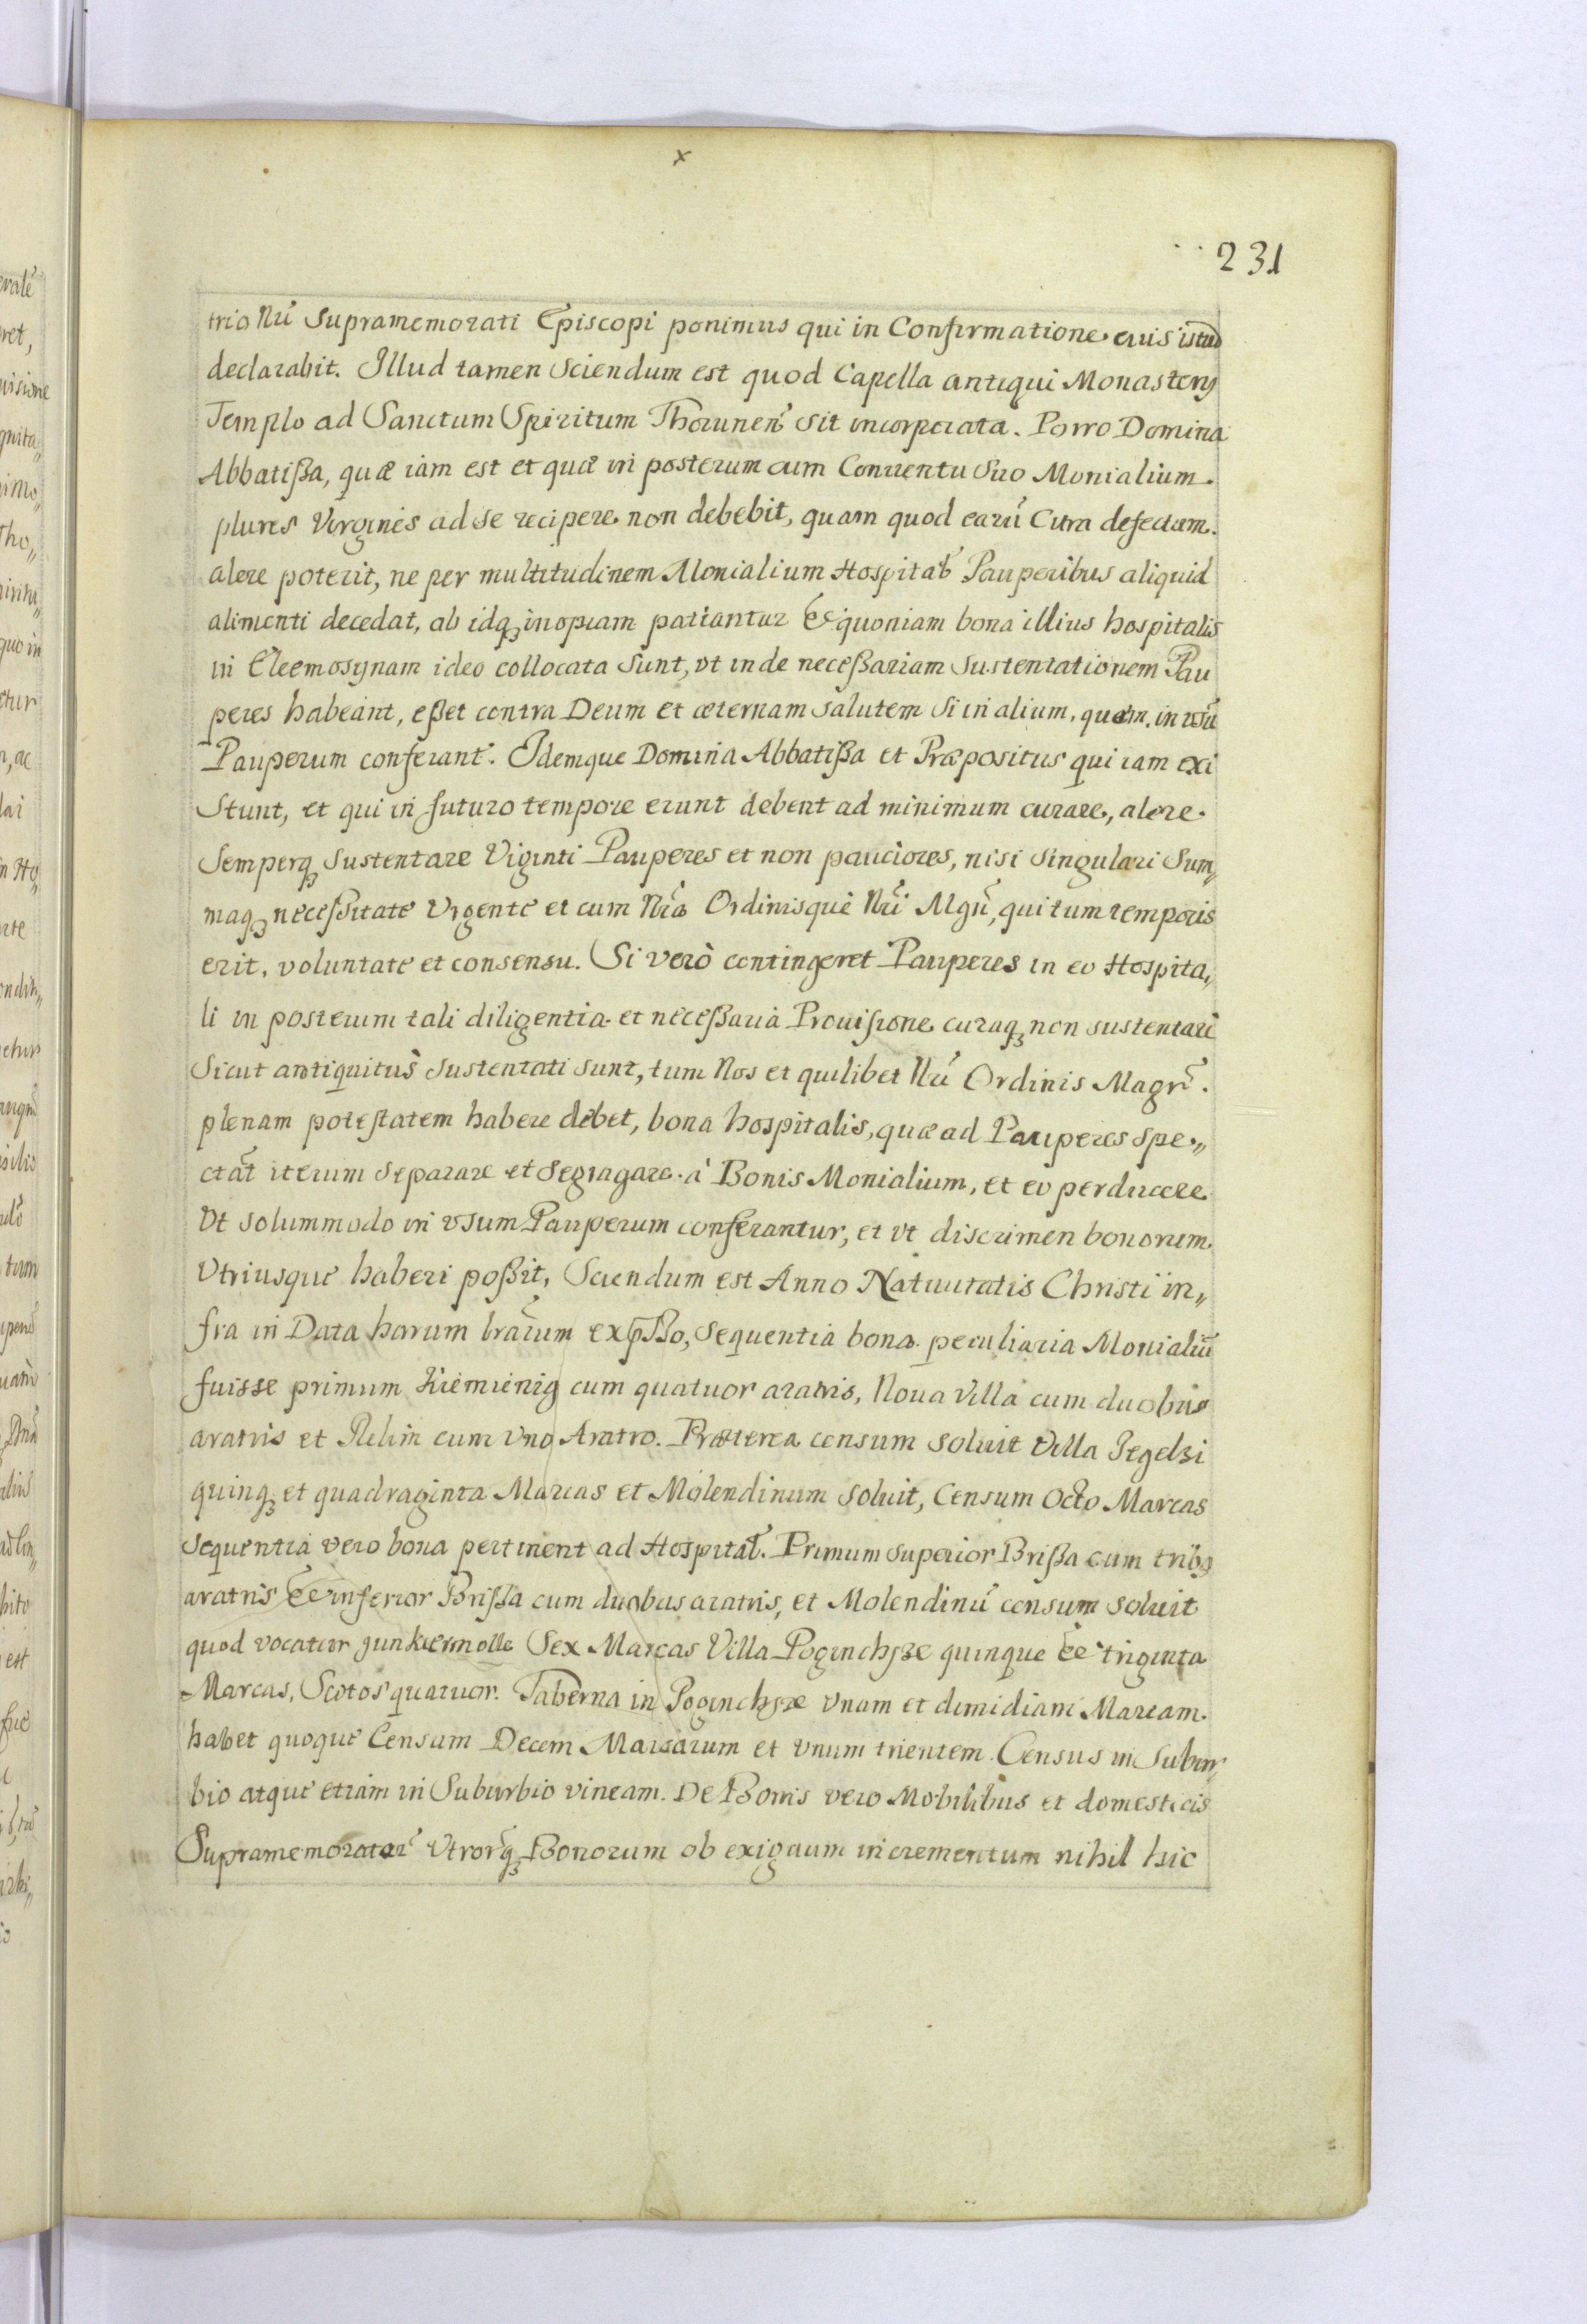 231
trio Nrĩ Supramemorati Episcopi ponimus qui in Confirmatione eius istud
declarabit. Illud tamen Sciendum est quod Capella antiqui Monasterij
Templo ad Sanctum Spiritum Thoruneñ sit incorporata. Porro Domina
Abbatißa, quæ iam est et quæ in posterum cum Conuentu Suo Monialium
plures Virgines ad se recipere non debebit, quam quod earũ Citra defectum
alere poterit, ne per multitudinem Monialium Hospitał Pauperibus aliquid
alimenti decedat, ab idq₃ inopiam patiantur Et quoniam bona illius hospitalis
in Eleemosynam ideo collocata Sunt, vt inde neceßariam Sustentationem Pau
peres habeant, eßet contra Deum et æternam salutem Si in alium, quam in vsũ
Pauperum conferant. Idemque Domina Abbatißa et Præpositus qui iam exi
Stunt, et qui in futuro tempore erunt debent ad minimum curare, alere
Semperq₃ Sustentare Viginti Pauperes et non pauciores, nisi Singulari Sum„
maq₃ neceßitate Vrgente et cum Nrã Ordinisque Nrĩ Mgrĩ, qui tum temporis
erit, voluntate et consensu. Si verò contingeret Pauperes in eo Hospita„
li in posterum tali diligentia et neceßaria Prouisione curaq₃ non sustentari
Sicut antiquitus sustentati sunt, tum Nos et quilibet Nrĩ Ordinis Magr̃.
plenam potestatem habere debet, bona hospitalis, quæ ad Pauperes spe„
ctãt iterum separare et Segragare à Bonis Monialium, et eo perducere
Vt solummodo in vsum Pauperum conferantur, et vt discrimen bonorum
Vtriusque haberi poßit, Sciendum est Anno Natiuitatis Christi in„
fra in Data harum lrãrum expßo, Sequentia bona peculiaria Monialiũ
fuisse primum Kiemienig cum quatuor aratris, Noua Villa cum duobus
aratris et Rubin cum vno Aratro. Præterea censum soluit Villa Segelsi
quinq₃ et quadraginta Marcas et Molendinum soluit, Censum Octo Marcas
Sequentia vero bona pertinent ad Hospitał. Primum superior Brißa cum tribq
aratris Et inferior Brißa cum duobus aratris, et Molendinũ censum soluit
quod vocatur junkiermolle Sex Marcas Villa Poginchsze quinque Et triginta
Marcas, Scotos quatuor. Taberna in Poginchsze vnam et dimidiam Marcam
habet quoque Censum Decem Marcarum et vnum trientem. Census in Subur„
bio atque etiam in Suburbio vineam. De Bonis vero Mobilibus et domesticis
Supramemoratar̃ Vtrorq̃₃ Bonorum ob exiguum incrementum nihil hic